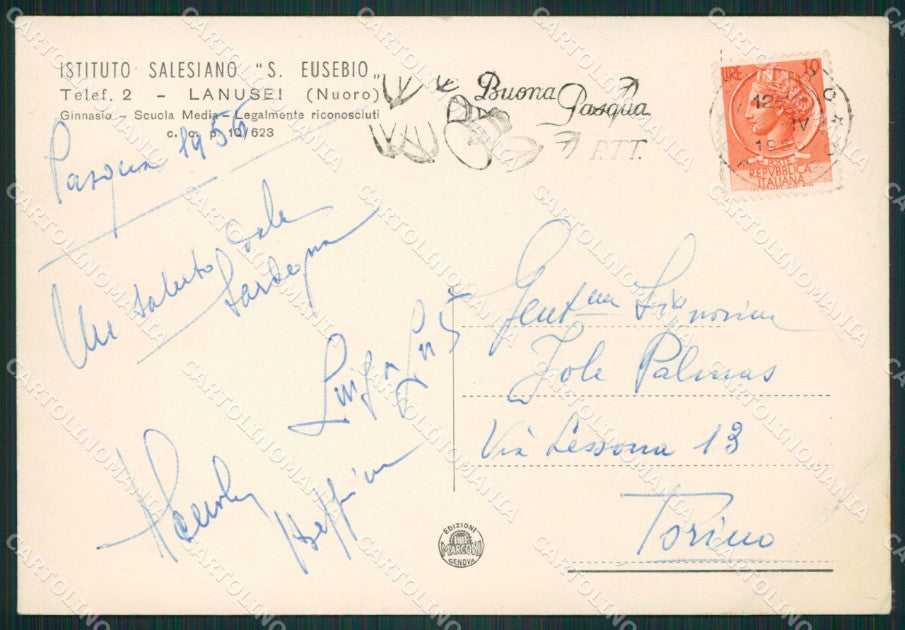 ISTITUTO SALESIANO "S. EUSEBIO"
Telef. 2 - LANUSEI (Nuoro)
Ginnasio - Scuola Media - Legalmente riconosciuti
c. c. p. 10/623
Buona Pasqua
P.T.T.
LIRE 10
POSTE
REPVBBLICA
ITALIANA
Pasqua 1955
Un saluto dalla
Sardegna
Luigi
Gent.ma Signorina
Jole Palmas
Via Lessona 13
Torino
EDIZIONI
MARCONI
GENOVA
CARTOLINOMANIA